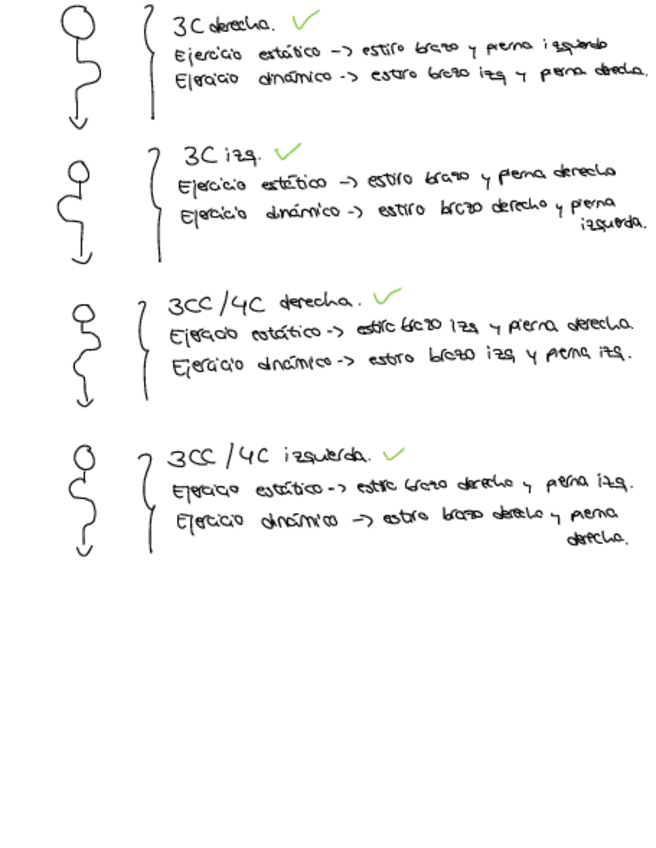 3C derecha.
Ejercicio estático -> estiro brazo y pierna izquierdo
Ejercicio dinámico -> estiro brazo izq y pierna derecha.
3C izq.
Ejercicio estático -> estiro brazo y pierna derecho
Ejercicio dinámico -> estiro brazo derecho y pierna
izquierda.
3CC/4C derecha.
Ejercicio estático -> estiro brazo izq y pierna derecha.
Ejercicio dinámico -> estiro brazo izq y pierna izq.
3CC/4C izquierda.
Ejercicio estático -> estiro brazo derecho y pierna izq.
Ejercicio dinámico -> estiro brazo derecho y pierna
derecha.